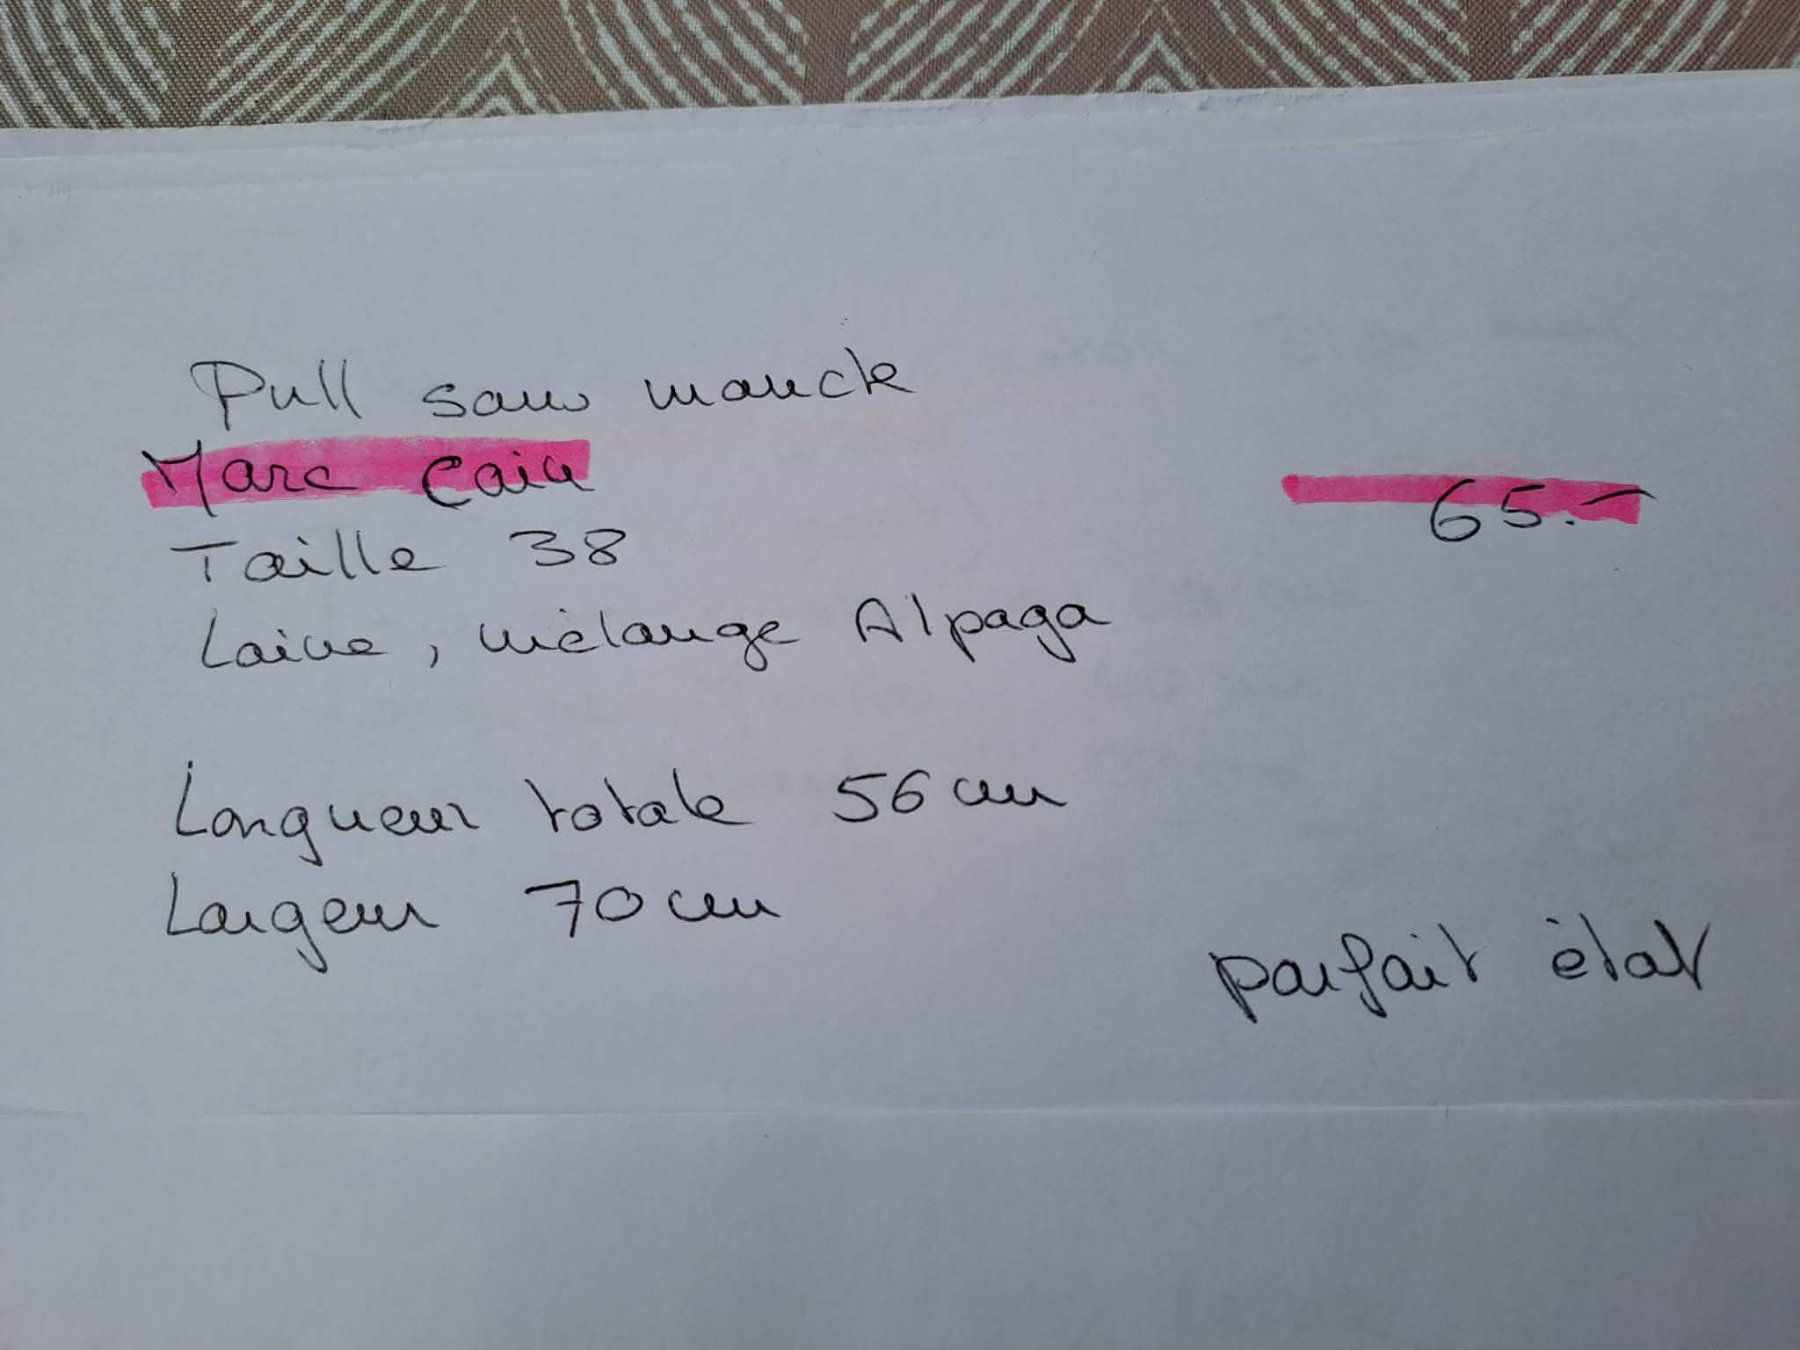 Pull sans manche
Marc Cain
65.-
Taille 38
Laine, mélange Alpaga
Longueur totale 56 cm
Largeur 70 cm
parfait état